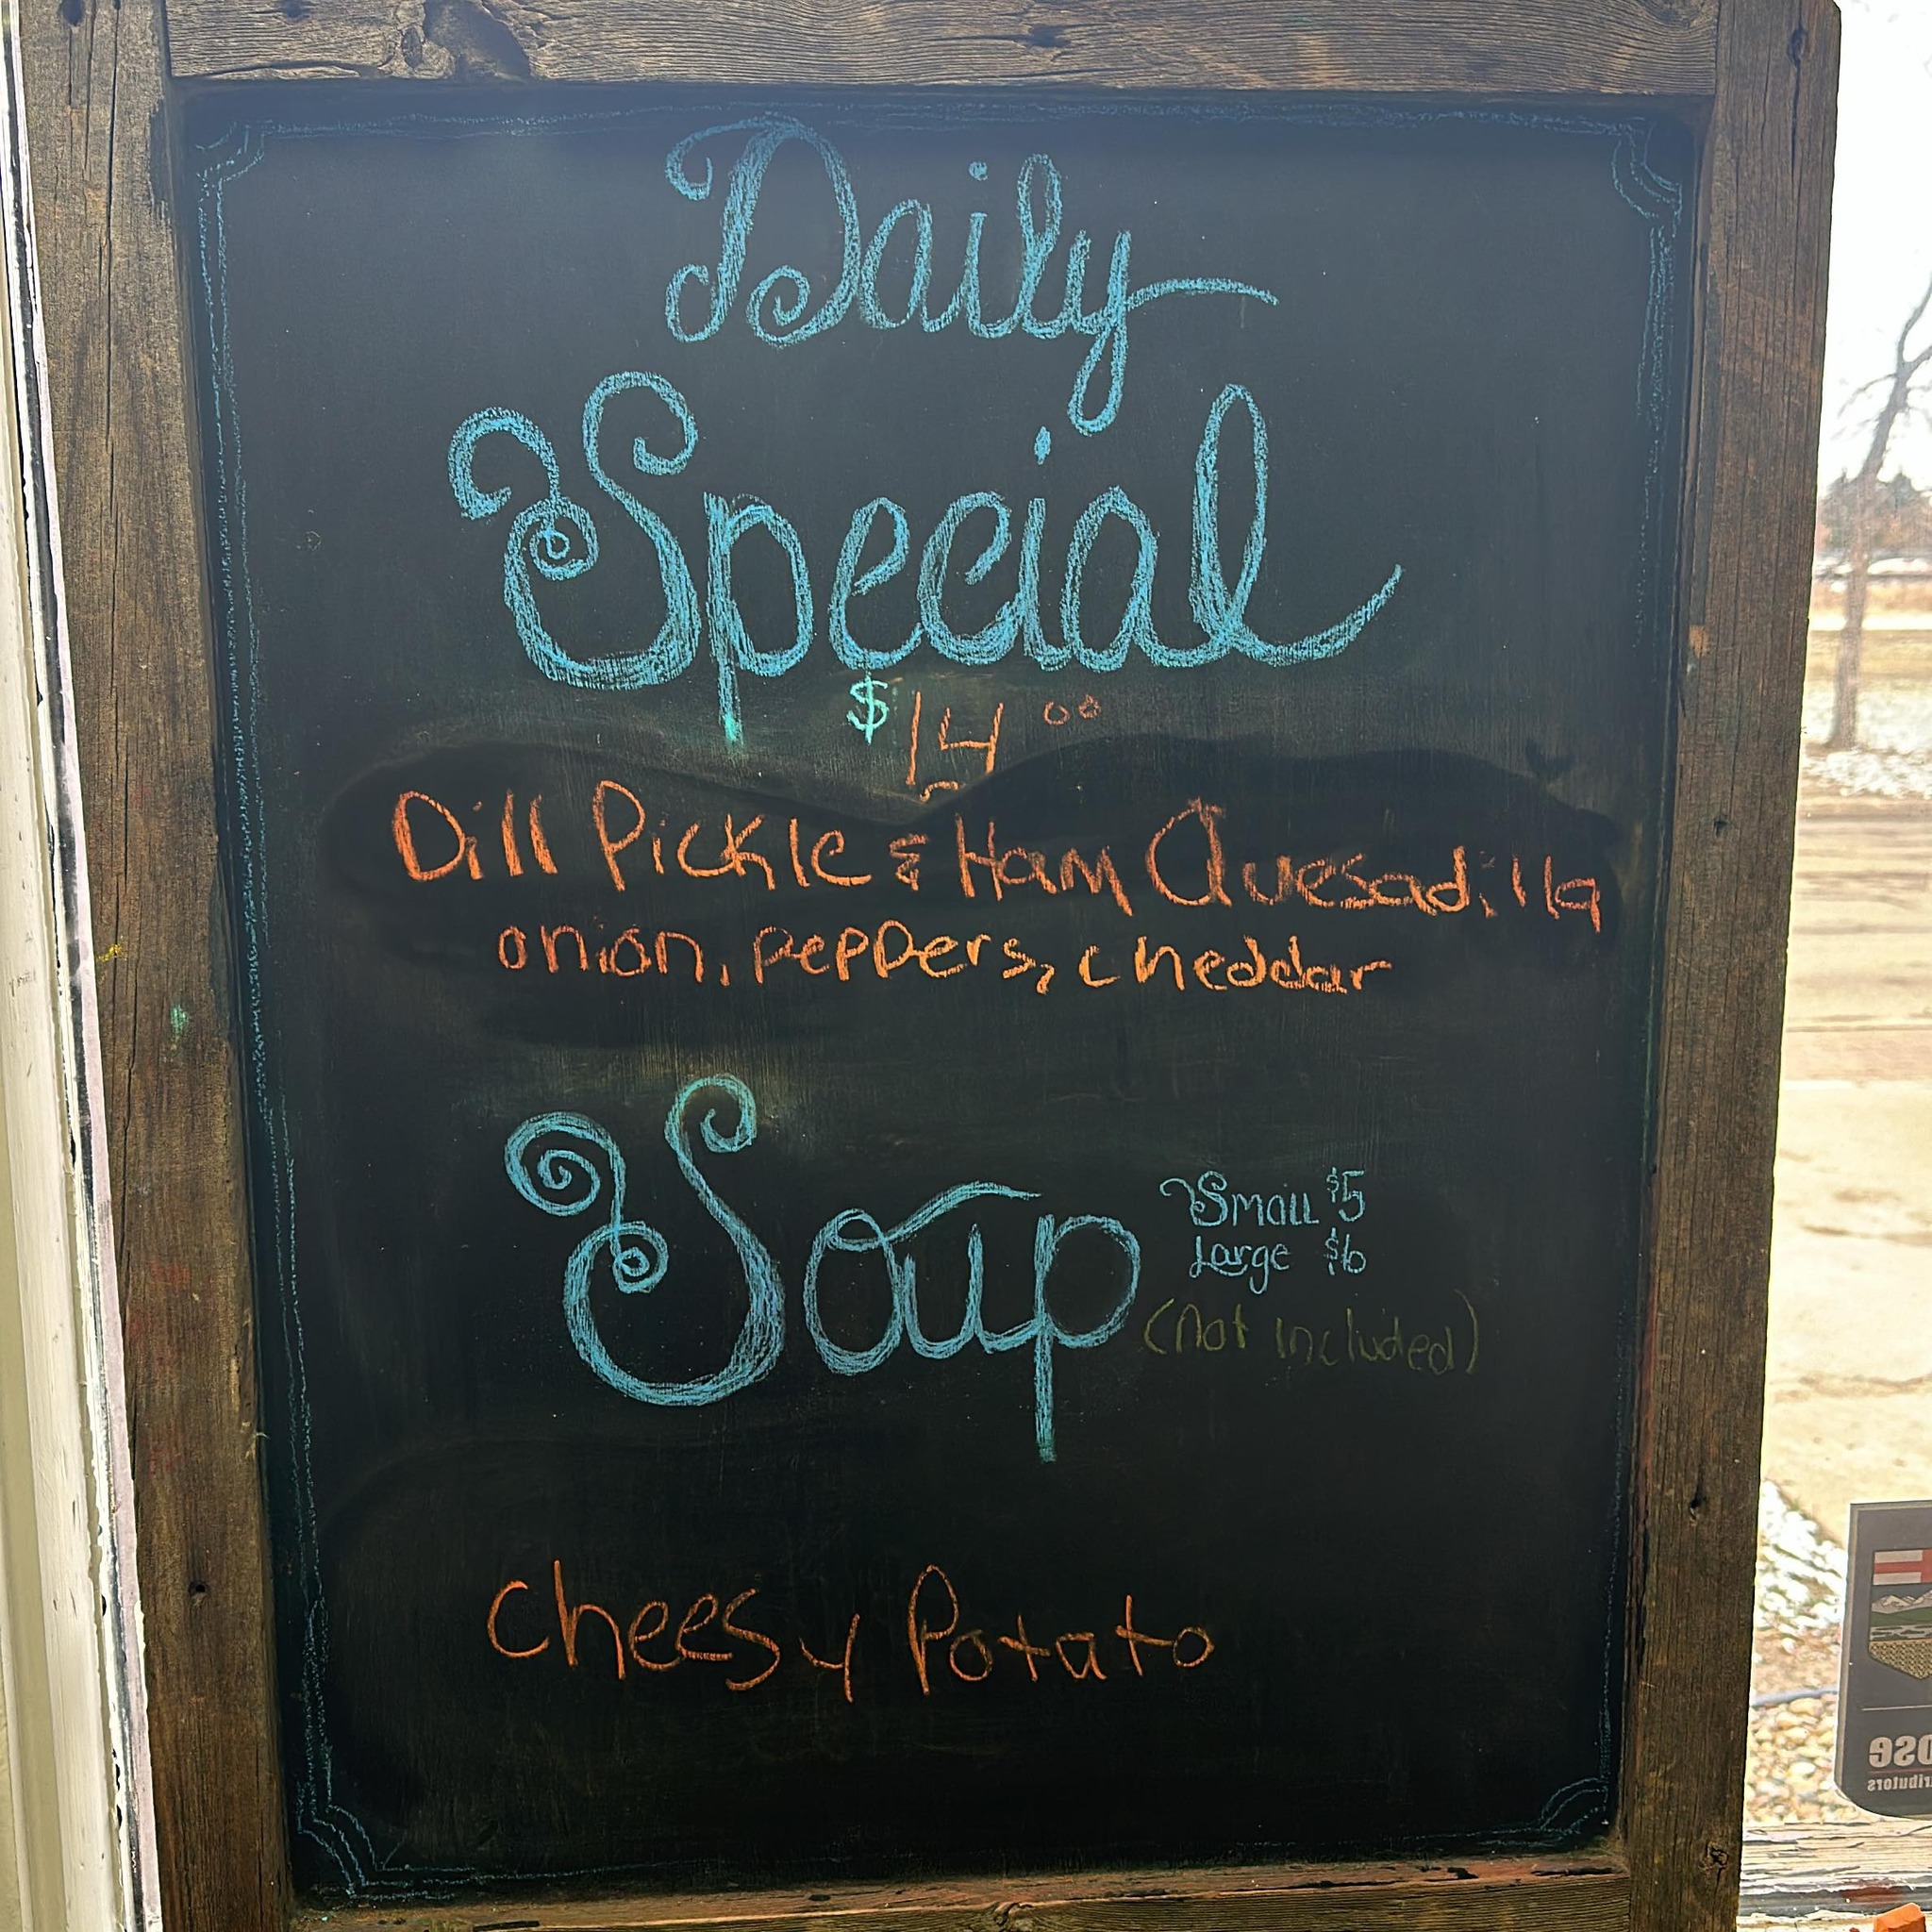 Daily
Special
$14 00
Dill Pickle & Ham Quesadilla
onion, peppers, cheddar
Soup
Small $5
Large $6
(not included)
Cheesy Potato